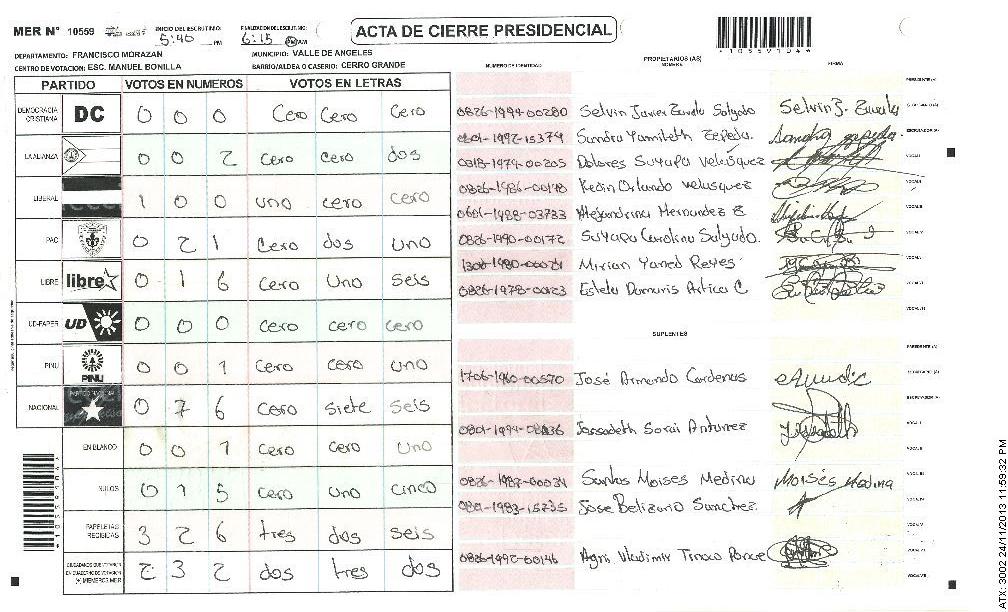 MER N° 10559 INICIO DEL ESCRUTINIO: 5:40 PM FINALIZACION DEL ESCRUTINIO: 6:15 AM
ACTA DE CIERRE PRESIDENCIAL
DEPARTAMENTO: FRANCISCO MORAZAN MUNICIPIO: VALLE DE ANGELES
CENTRO DE VOTACION: ESC. MANUEL BONILLA BARRIO/ALDEA O CASERIO: CERRO GRANDE
PARTIDO VOTOS EN NUMEROS VOTOS EN LETRAS
DEMOCRACIA CRISTIANA DC 0 0 0 Cero Cero Cero
LA ALIANZA 0 0 2 cero cero dos
LIBERAL 1 0 0 uno cero cero
PAC 0 2 1 Cero dos uno
LIBRE libre 0 1 6 cero Uno seis
UD-FAPER UD 0 0 0 cero cero cero
PINU PINU 0 0 1 Cero Cero uno
NACIONAL 0 7 6 Cero siete seis
EN BLANCO 0 0 1 Cero Cero Uno
NULOS 0 1 5 cero uno cinco
PAPELETAS RECIBIDAS 3 2 6 tres dos seis
CIUDADANOS QUE VOTARON EN CUADERNO DE VOTACION (+) MIEMBROS MER 2 3 2 dos tres dos
PROPIETARIOS (AS)
NUMERO DE IDENTIDAD NOMBRE FIRMA
0826-1994-00280 Selvin Javier Zavala Salgado Selvin J. Zavala
0801-1992-15374 Sandra Yamileth Zepeda. Sandra zepeda
0818-1974-00205 Dolores Suyapa Velásquez
0826-1986-00178 Kevin Orlando Velasquez
0601-1988-03733 Alejandrina Hernandez E
0826-1990-00172 Suyapa Carolina Salgado.
Mirian Yaned Reyes
0826-1978-00123 Estela Damaris Artica C
SUPLENTES
1706-1960-00570 José Armando Cardenas
Jossadeth Sarai Antunez
0826-1987-00034 Santos Moises Medina Moisés Medina
0801-1983-15735 Jose Belizario Sanchez
0826-1992-00146 Vladimir Tinoco Ponce
ATX: 3002 24/11/2013 11:59:32 PM